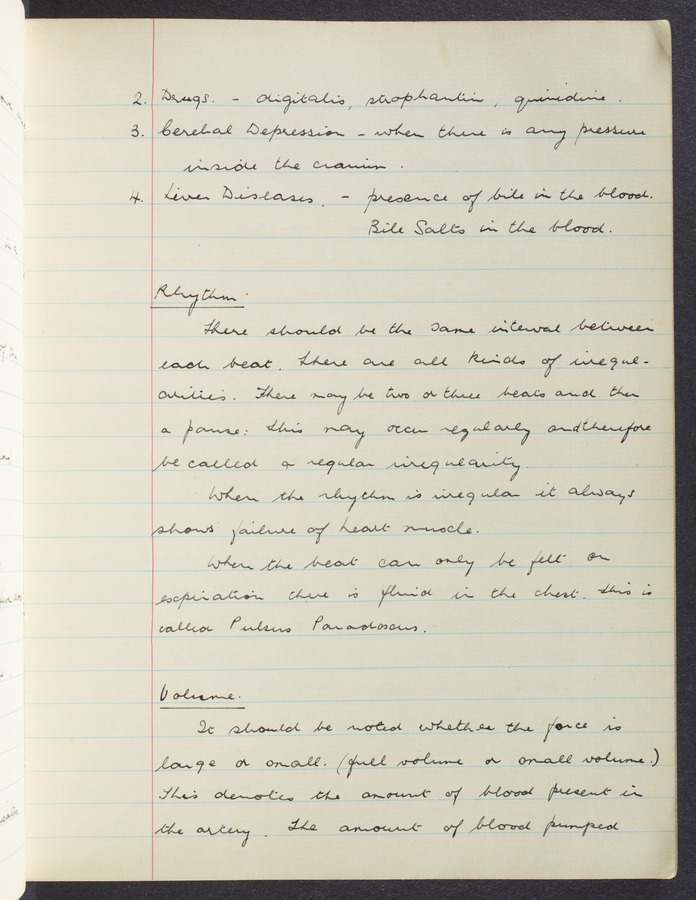 2. Drugs. - digitalis, strophantin, quinidine.
3. Cerebal Depression - when there is any pressure
inside the cranium.
4. Liver Diseases. - presence of bile in the blood.
Bile Salts in the blood.
Rhythm.
There should be the same interval between
each beat. There are all kinds of irregul-
arities. There may be two or three beats and then
a pause: this may occur regularly and therefore
be called a regular irregularity.
When the rhythm is irregular it always
shows failure of heart muscle.
When the beat can only be felt on
expiration there is fluid in the chest. This is
called Pulsus Paradoscus.
Volume.
It should be noted whether the force is
large or small. (full volume or small volume.)
This denotes the amount of blood present in
the artery. The amount of blood pumped